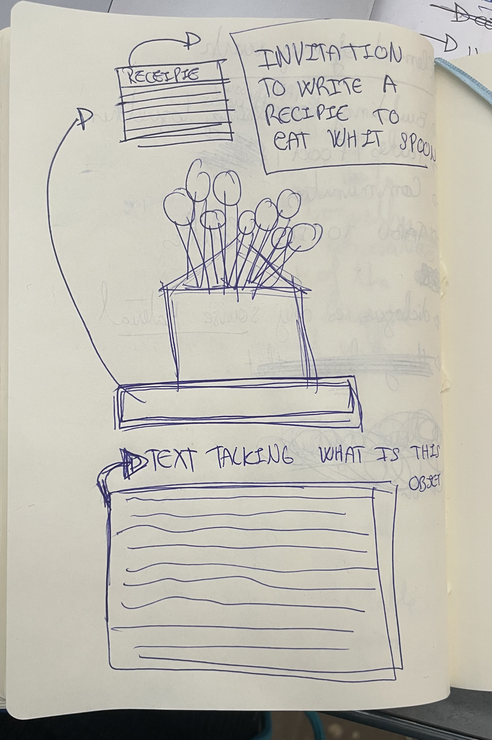 RECEIPIE
INVITATION
TO WRITE A
RECIPIE TO
EAT WHIT SPOON
TEXT TALKING WHAT IS THIS
OBJET